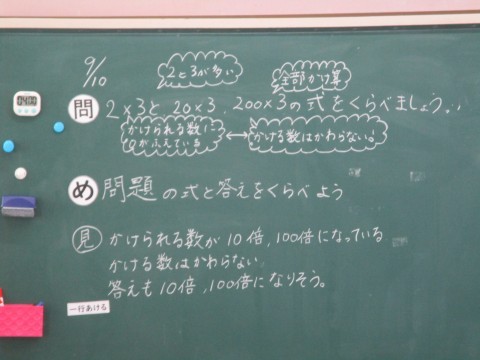 9/10
2と3が多い
全部かけ算
04:00
問 2×3と20×3、200×3の式をくらべましょう。
かけられる数に
0がふえている
↔
かける数はかわらない。
め 問題の式と答えをくらべよう
見 かけられる数が10倍,100倍になっている
かける数はかわらない
答えも10倍,100倍になりそう。
一行あける